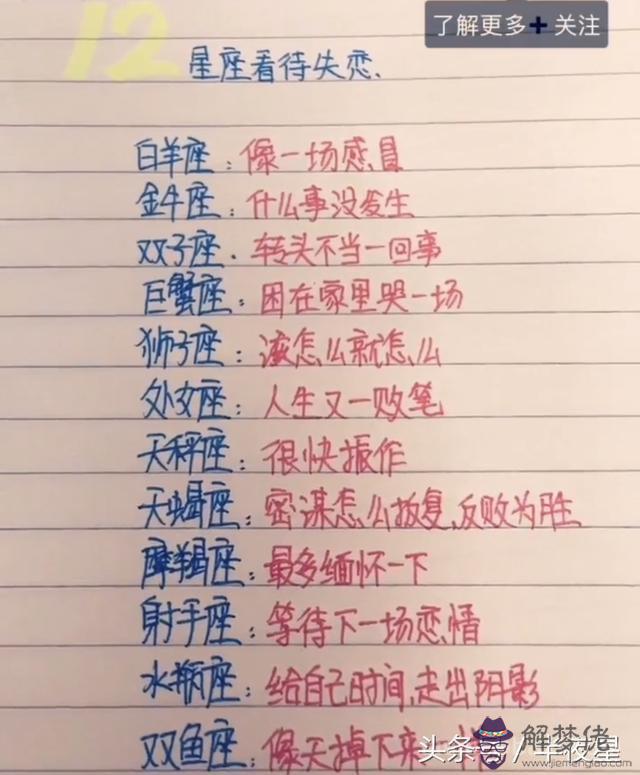 了解更多+关注
12
星座看待失恋.
白羊座：像一场感冒
金牛座：什么事没发生
双子座.转头不当一回事
巨蟹座：困在家里哭一场
狮子座：该怎么就怎么
处女座：人生又一败笔
天秤座：很快振作
天蝎座：密谋怎么报复,反败为胜
摩羯座：最多缅怀一下
射手座：等待下一场恋情
水瓶座：给自己时间,走出阴影
双鱼座：像天掉下来
头条号/半夜星
解梦佬
www.jiemenglao.com